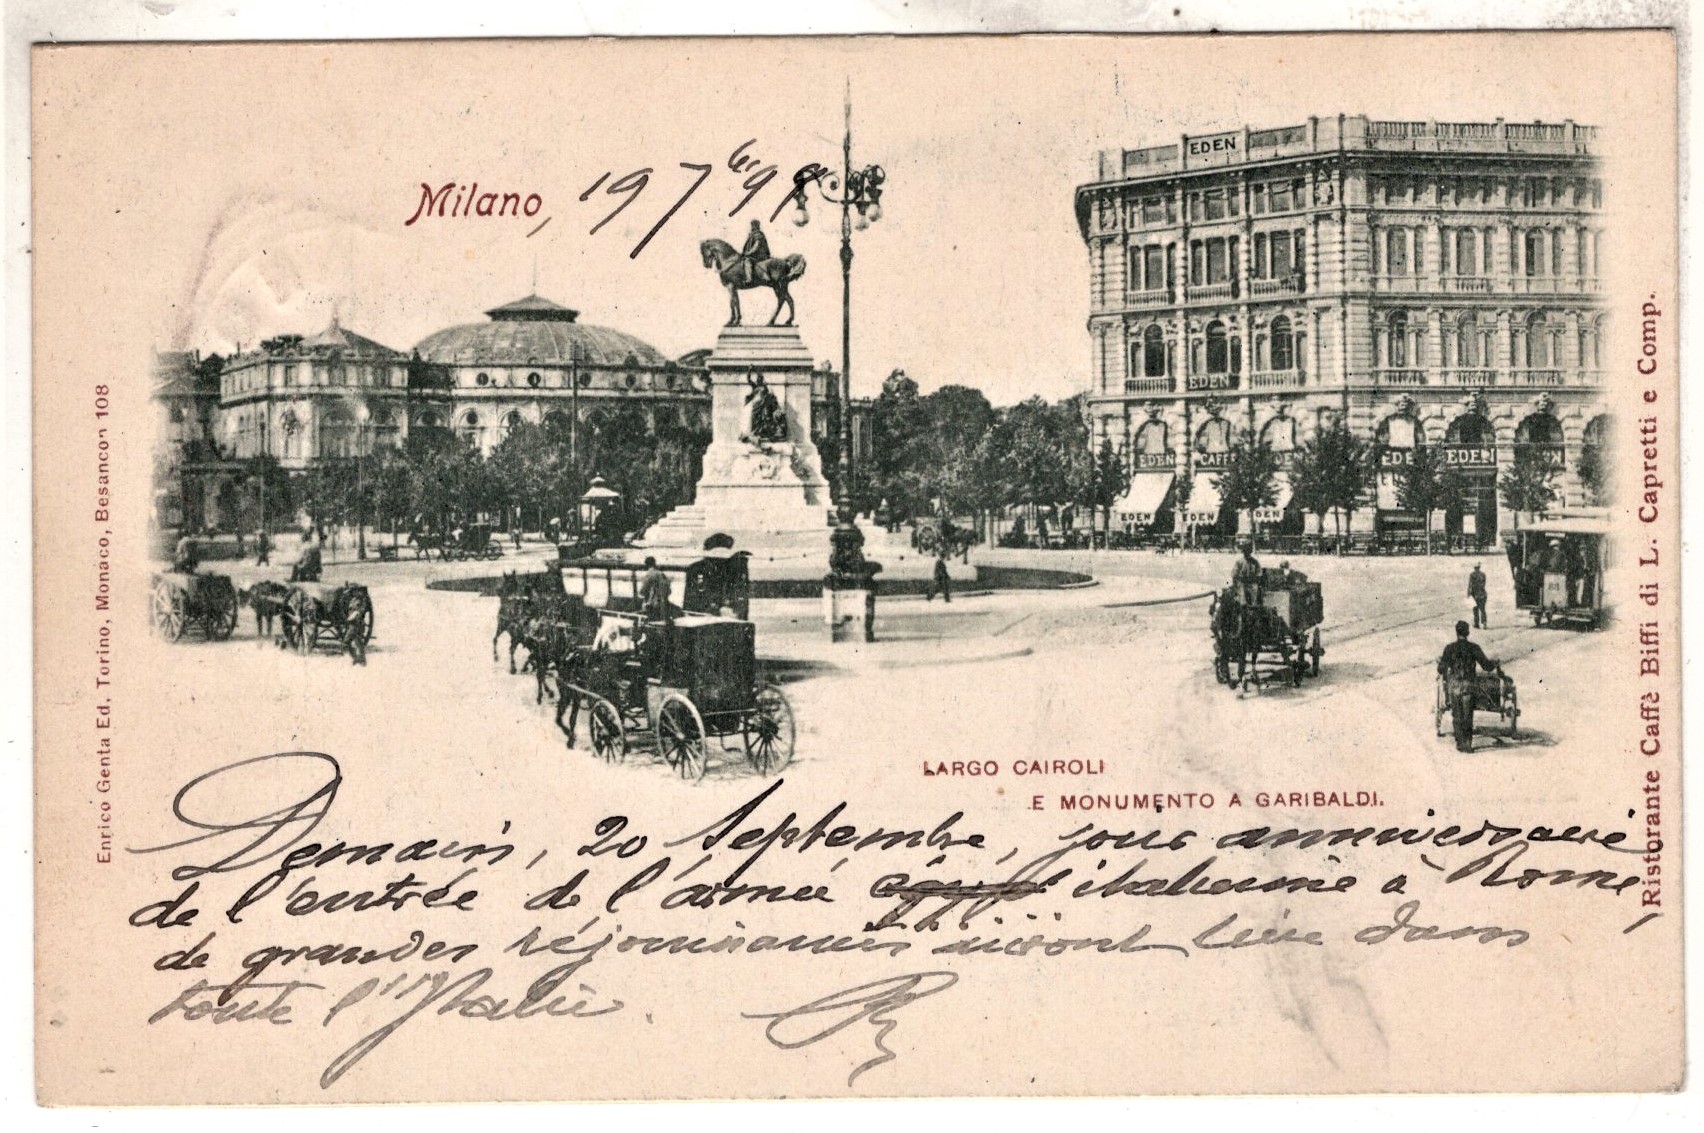 Milano, 19 7bre 98
EDEN
EDEN
EDEN
CAFFÈ
EDEN
EDEN
EDEN
EDEN
EDEN
Enrico Genta Ed. Torino, Monaco, Besancon 108
Ristorante Caffè Biffi di L. Capretti e Comp.
LARGO CAIROLI
E MONUMENTO A GARIBALDI.
Demain, 20 Septembre, jour anniversaire
de l'entrée de l'armée italienne à Rome,
de grandes réjouissances auront lieu dans
toute l'Italie.